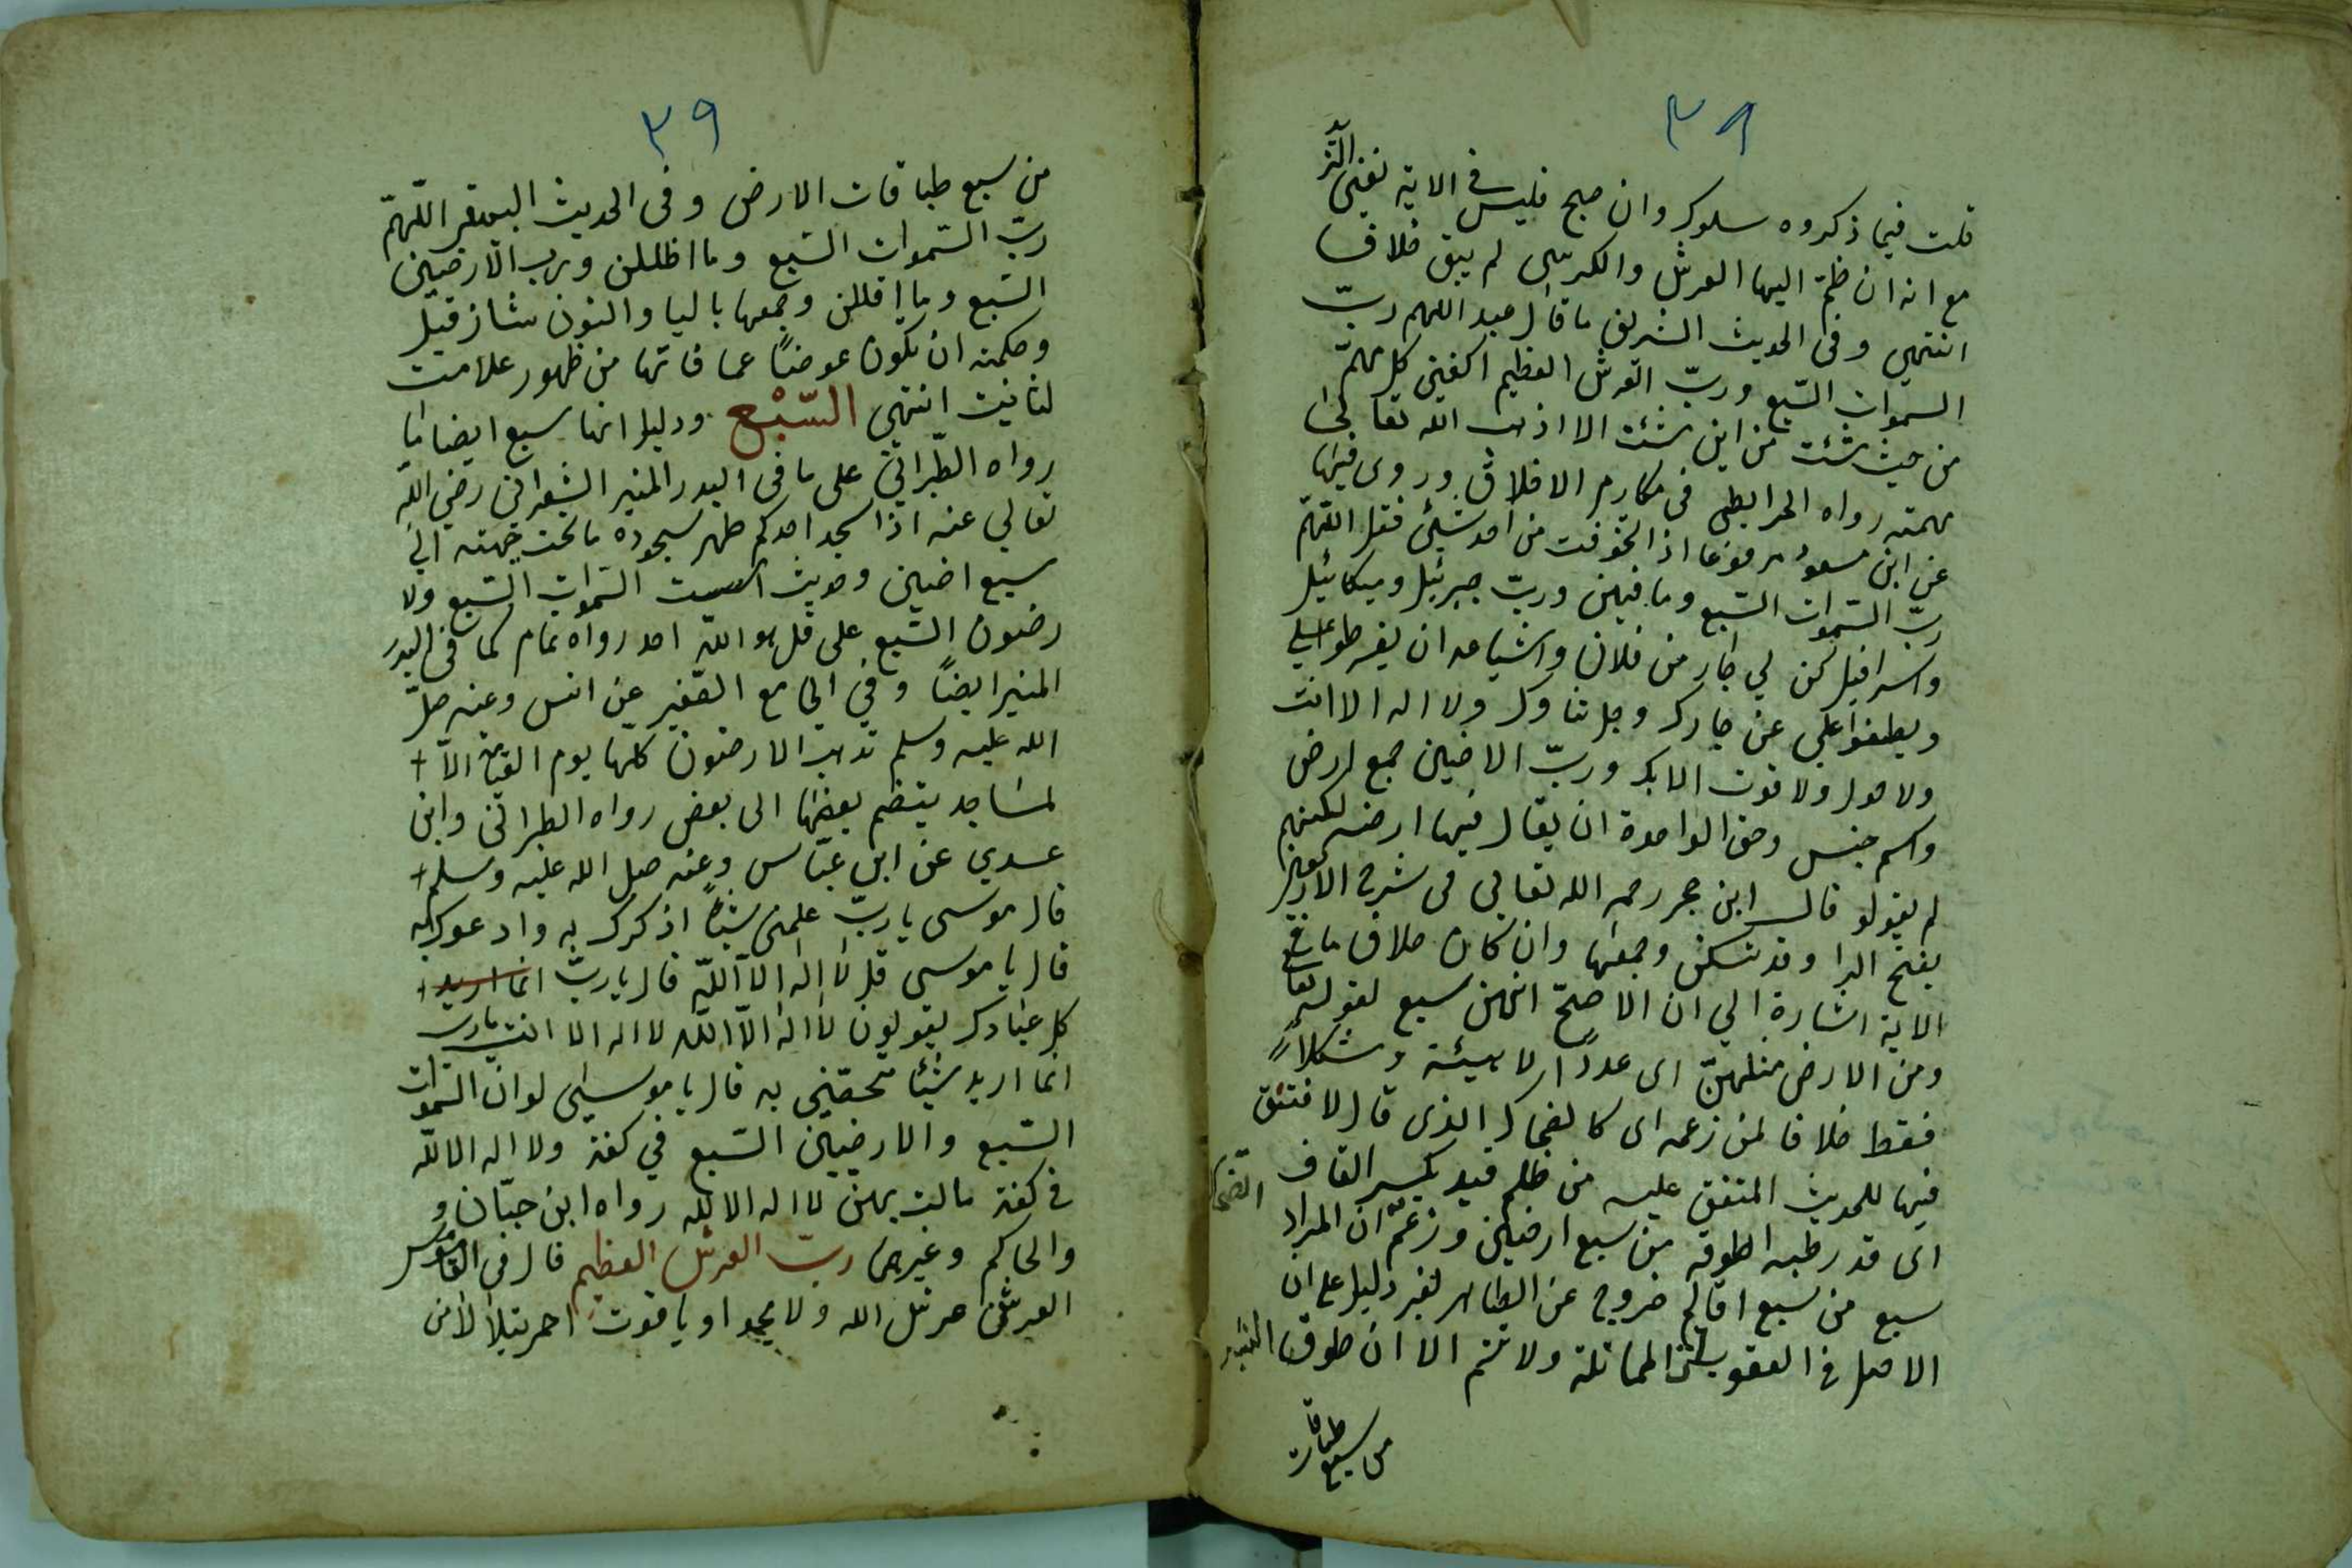 ٣٨
قلت فيما ذكروه سلوكر وان صح فليس في الاية نفي الز
مع انه ان ضم اليها العرش والكرسى لم يبق خلاف
انتهى وفى الحديث الشريف ما قال عبد اللهم ربّ
السموات السّبع وربّ العرش العظيم اكفنى كل مهمّ
من حيث شئت من اين شئت الا اذهب الله تعالى
همته رواه الخرايطى فى مكارم الاخلاق وروى فيها
عن ابن مسعود مرفوعا اذا تخوفت من احد شيئ فقل اللّهمّ
ربّ السّموات السّبع وما فيهن وربّ جبرئيل وميكائيل
واسرافيل كن لي جار من فلان واشياعه ان يفرطوا علي
ويطغوا علي عن جارك وجل ثناوك ولا اله الا انت
ولا حول ولا قوت الا بك وربّ الاضين جمع ارض
واسم جنس وحق الواحدة ان يقال فيها ارضه لكنهم
لم يقولو قال ابن حجر رحمه الله تعالى فى شرح
بفتح الرا وقد تسكن وجمعها وان كان خلاف ما في
الاية اشارة الي ان الاصحّ انهن سبع لقوله تعا
ومن الارض مثلهنّ اى عدداً لا هيئة وشكلاً
فقط خلافا لمن زعمه اى كالضحاك الذى قال لا فتتق
فيها للحديث المتفق عليه من ظلم قيد بكسر القاف
اى قدر ظبه اطوقه من سبع ارضين وزعمّ ان المراد
سبع من سبع اقاليم خروج عن الظاهر لغير دليل على ان
الاصل في العقوبات المماثلة ولا تتم الا ان طوق
من سبع طباقات
٣٩
من سبع طباقات الارض وفى الحديث اللّهمّ
ربّ السّموات السّبع وما اظللن ورب الارضين
السّبع وما اقللن وجمعها باليا والنون شاز قيل
وحكمته ان يكون عوضاً عما فاتها من ظهور علامت
لتانيث انتهى السّبْع ودليل انها سبع ايضا ما
رواه الطّبرانى على ما فى البدر المنير الشعرانى رضي الله
تعالي عنه اذا سجد احدكم طهر سجوده ما تحت جبهته الي
سبع اضين وحديث اسست السّموات السّبع ولا
رضون السّبع على قل هو اللّه احد رواه تمام كما فى البدر
المنير ايضاً وفي الجامع الصّغير عن انس وعنه صلّ
الله عليه وسلم تذهب الارضون كلها يوم القيامة الاّ
لمساجد ينضم بعضها الى بعض رواه الطبرانى وابن
عدي عن ابن عبّاس وعنه صل الله عليه وسلم
قال موسى يا ربّ علمنى شياً اذكرك به وادعوك به
قال يا موسى قل لا اله الاّ اللّه قال يا ربّ انما اريد
كل عبادك يقولون لا اله الاّ اللّه لا اله الا انت يارب
انما اريد شيئا تخصّنى به قال يا موسى لو ان السّموات
السّبع والارضيين السّبع في كفة ولا اله الا للّه
في كفة مالت بهن لا اله الا لله رواه ابن حبّان و
والحاكم وغيرها ربّ العرش العظيم قال فى القاموس
العرش عرش الله ولا يحد او ياقوت احمر يتلألأ من